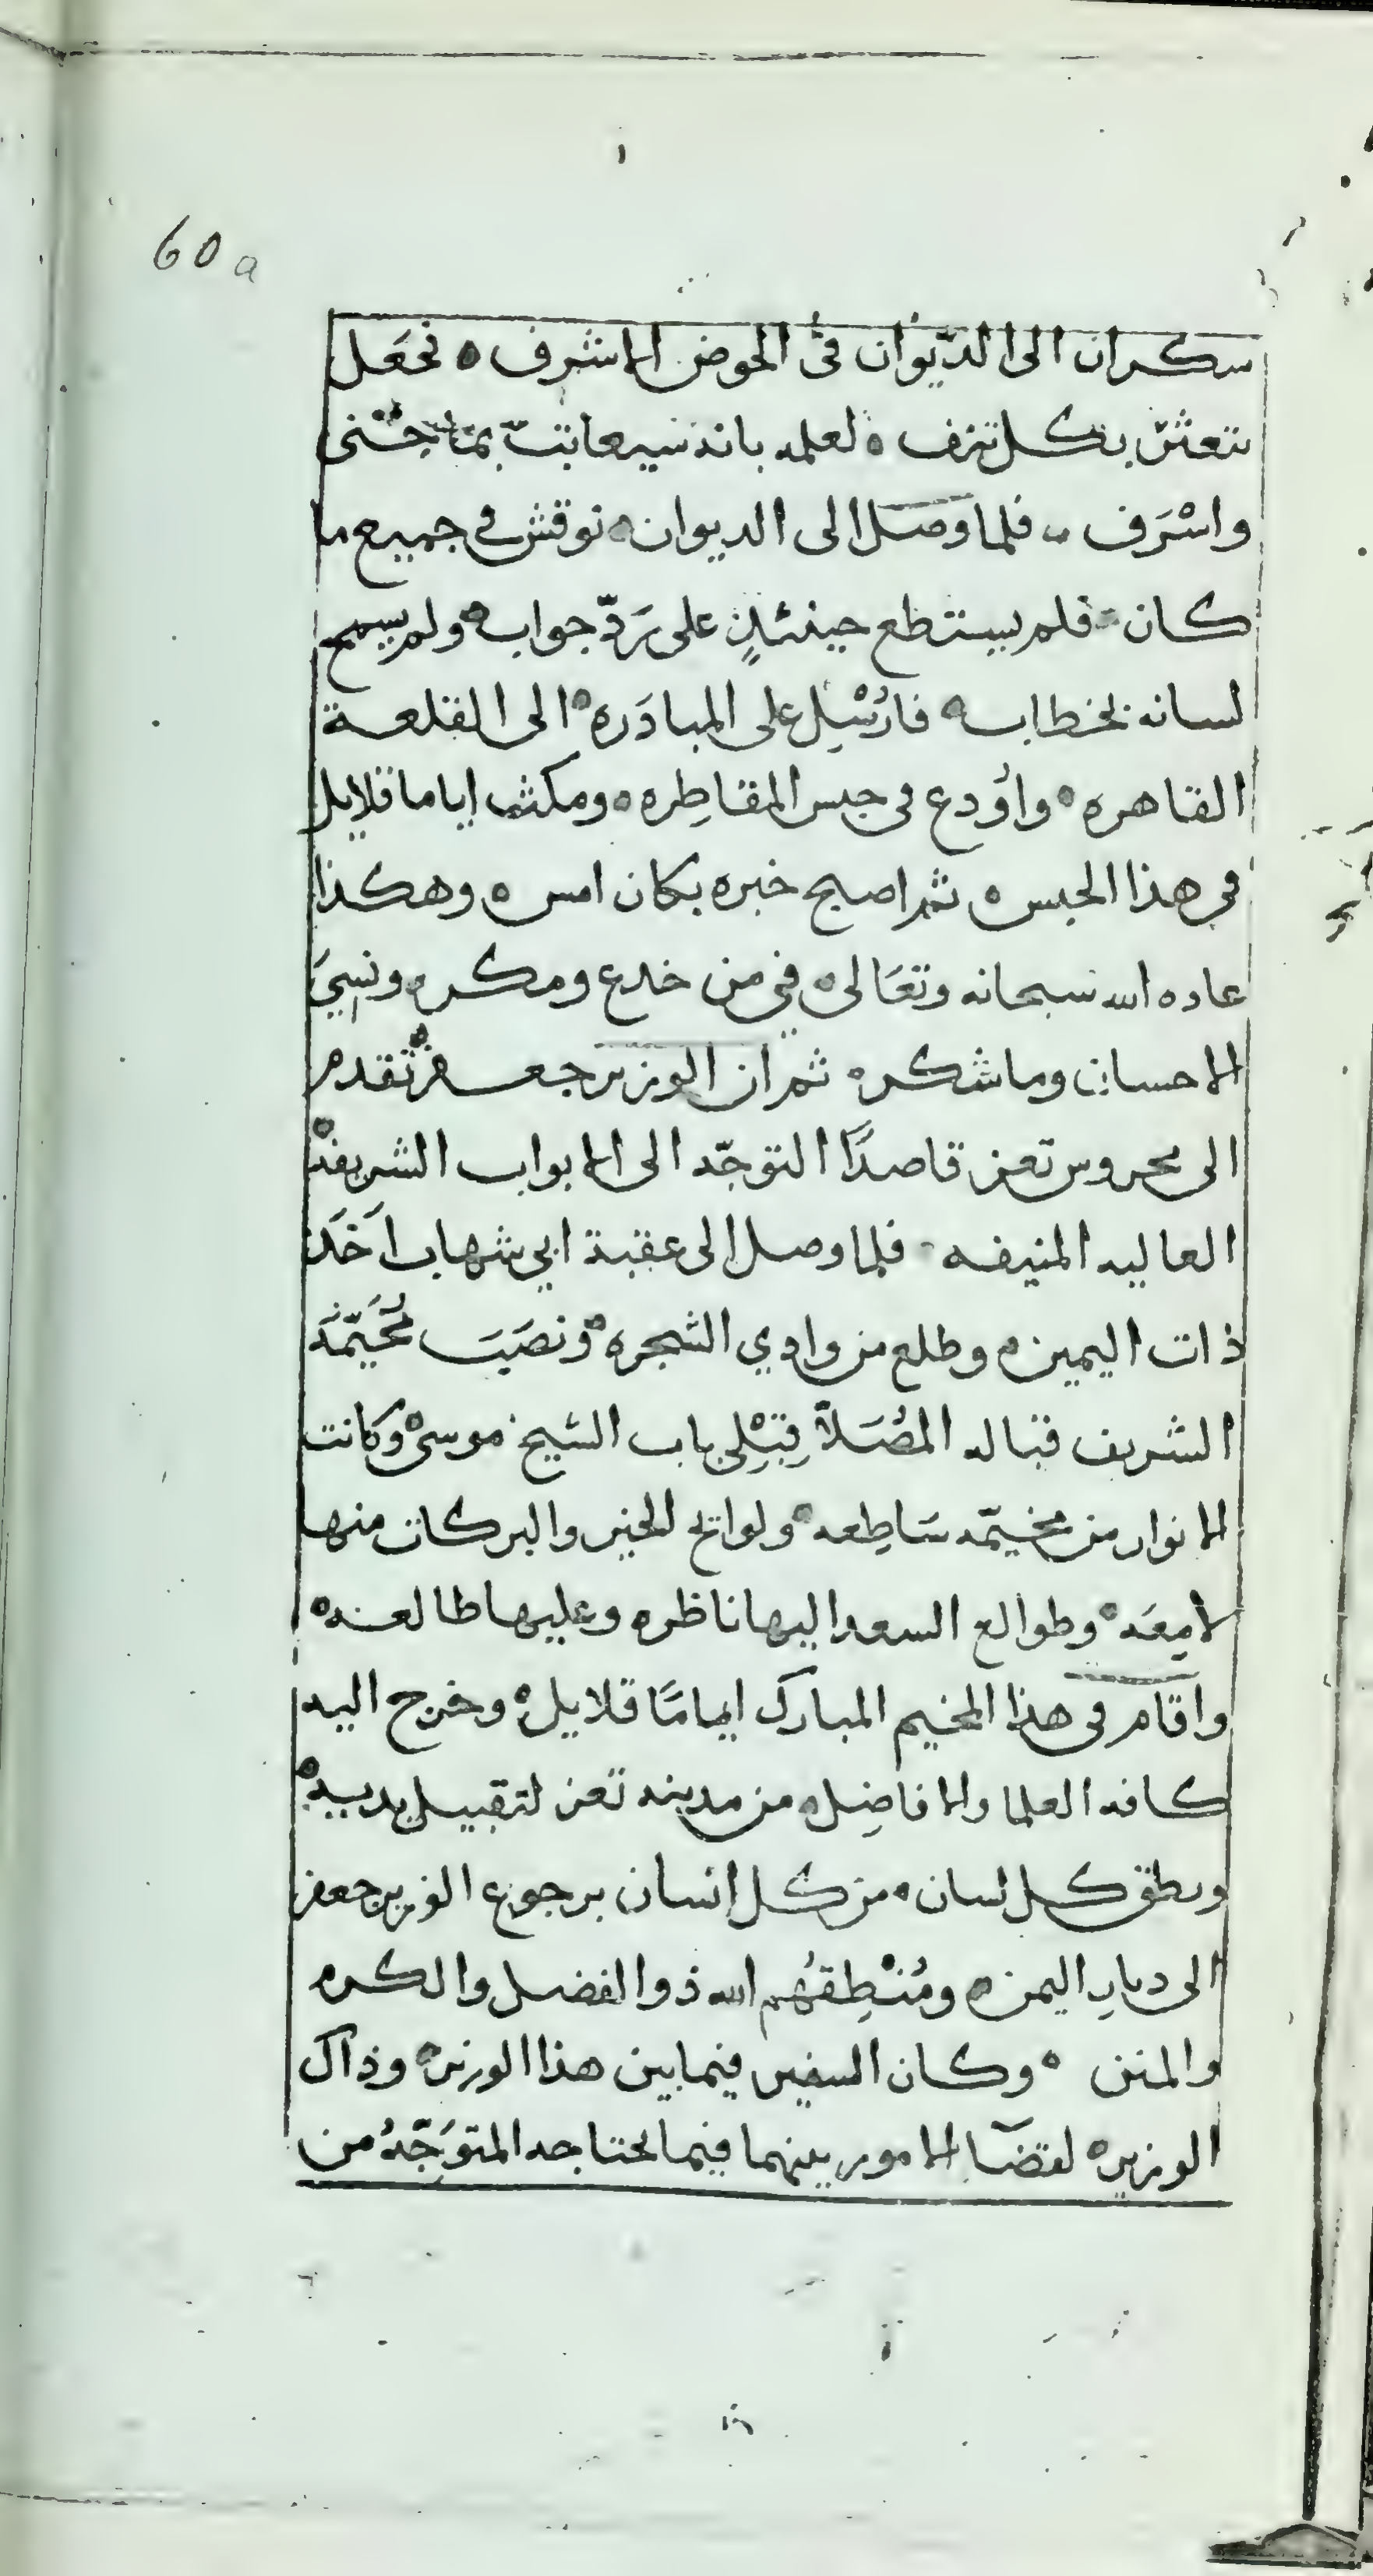 60 a
سكران الى الديوان في الحوض الاشرف ه فجعل
يتعثر بكل تزف ه لعلمه بانه سيعاتب بما جنى
واسْرَف ه فلما وصل الى الديوان ه نوقش في جميع ما
كان ه فلم يستطع حينئذٍ على رَدّ جوابه ولم يسمح
لسانه بخطابه فارُسْل على المبادَره ه الى القلعة
القاهره ه واوُدع في حبس المقاطِره ه ومكث اياما قلايل
في هذا الحبس ه ثم اصبح خبره بكان امس ه وهكذا
عاده الله سبحانه وتعَالى ه في من خدع ومكر ه ونسِيَ
الاحسان وما شكر ه ثم ان الوزير جعفر تقدم
الى محروس تعز قاصدًا التوجّه الى الابواب الشريفه
العاليه المنيفه ه فلما وصل الى عقبة ابي شهاب اَخَذَ
ذات اليمين ه وطلع من وادي الشجره ه ونصَبَ مُخَيّمَه
الشريف قباله المصُلاّ قِبْلي باب الشيخ موسى ه وكانت
الانوار من مخيّمه سَاطِعه ه ولوائح الخير والبركات منها
لامِعَه ه وطوالع السعد اليها ناظره وعليها طالعه ه
واقام في هذا المخيم المبارك ايامًا قلايل ه وخرج اليه
كافه العلما والافاضِل ه من مدينه تعز لتقبيل يديه ه
ونطق كل لسان ه من كل انسان برجوع الوزير جعفر
الى ديارِ اليمن ه ومُنْطِقهُم الله ذو الفضل والكرم
والمنن ه وكان السفير فيما بين هذا الوزير ه وذاك
الوزير ه لقضآ الامور بينهما فيما يحتاجه المتوَجّهُ من